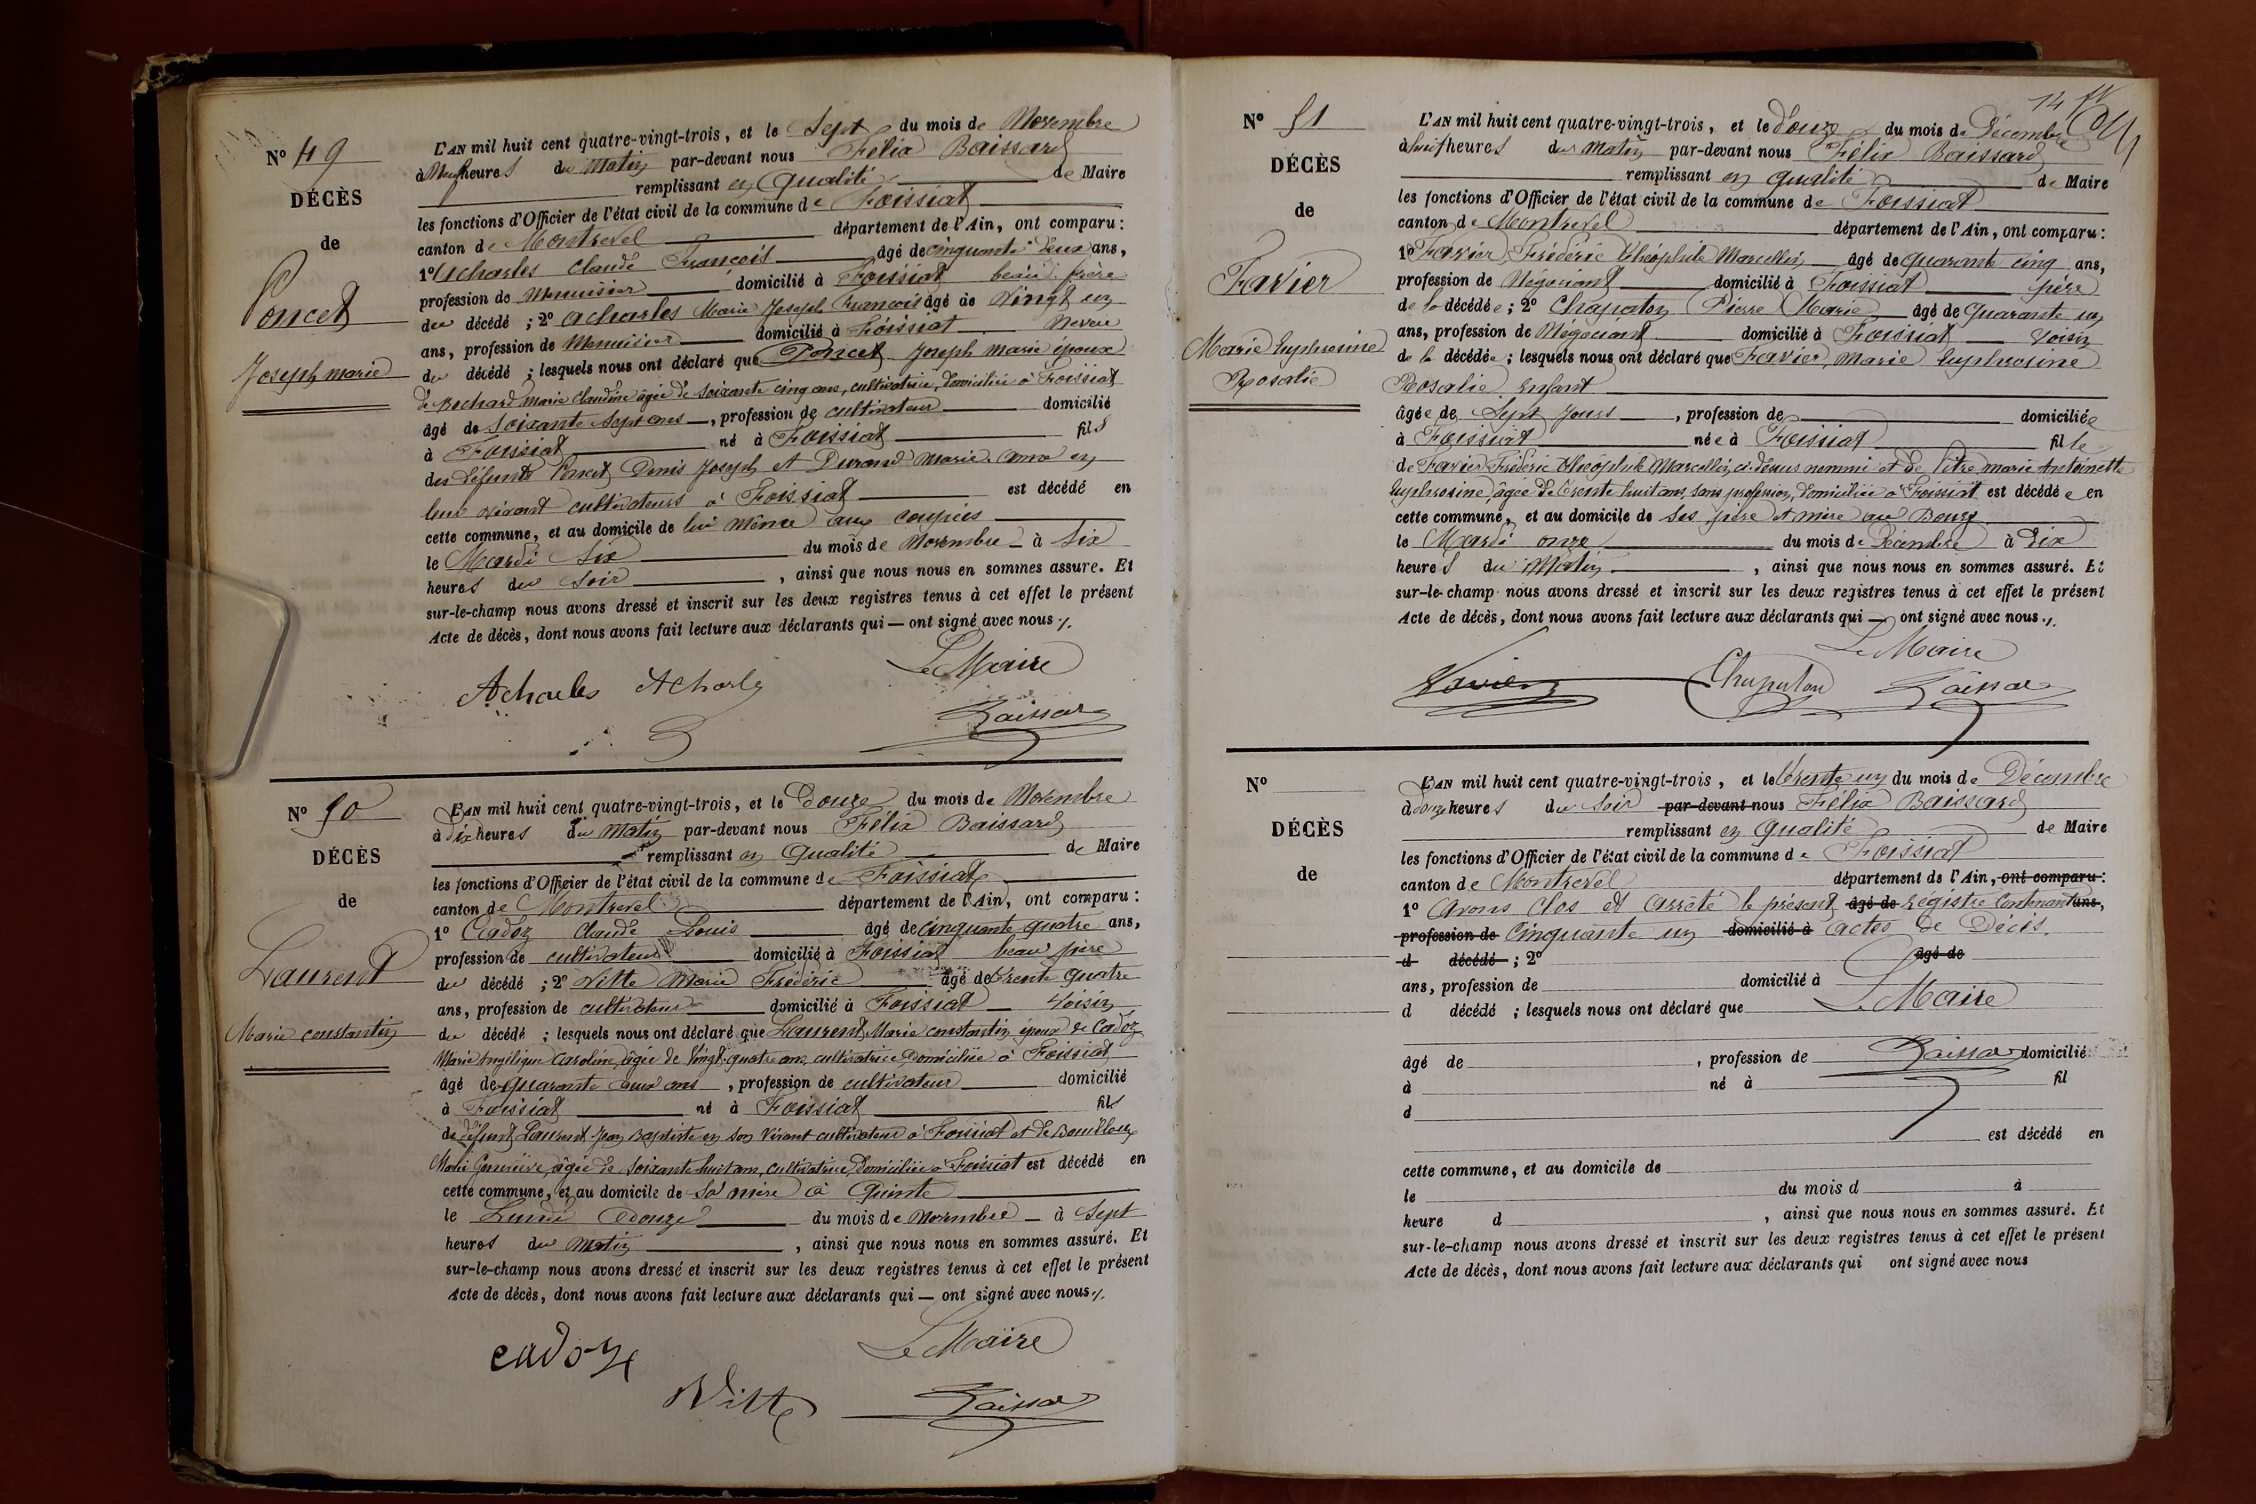 Nº 49
DÉCÈS
de
Poncet
Joseph marie
L'AN mil huit cent quatre-vingt-trois, et le Sept du mois de Novembre
à Neuf heures du Matin par-devant nous Félix Baissard
remplissant en Qualité de Maire
les fonctions d'Officier de l'état civil de la commune de Foissiat
canton de Montrevel département de l'Ain, ont comparu :
1º Acharles Claude François âgé de cinquante-deux ans,
profession de Menuisier domicilié à Foissiat beau-frère
du décédé ; 2º Acharles Marie Joseph François âgé de vingt un
ans, profession de Menuisier domicilié à Foissiat Neveu
du décédé ; lesquels nous ont déclaré que Poncet Joseph marie époux
de Bochard marie Claudine âgée de soixante cinq ans, cultivatrice, domiciliée à Foissiat
âgé de soixante sept ans, profession de cultivateur domicilié
à Foissiat né à Foissiat fils
des défunts Poncet Denis Joseph et Durand Marie Anna en
leur vivant cultivateurs à Foissiat est décédé en
cette commune, et au domicile de lui même aux coupées
le Mardi Six du mois de Novembre à Six
heures du Soir, ainsi que nous nous en sommes assuré. Et
sur-le-champ nous avons dressé et inscrit sur les deux registres tenus à cet effet le présent
Acte de décès, dont nous avons fait lecture aux déclarants qui — ont signé avec nous ./.
Le Maire
Acharles Acharles
Baissard
Nº 50
DÉCÈS
de
Laurent
Marie constantin
L'AN mil huit cent quatre-vingt-trois, et le Douze du mois de Novembre
à dix heures du Matin par-devant nous Félix Baissard
remplissant en Qualité de Maire
les fonctions d'Officier de l'état civil de la commune de Foissiat
canton de Montrevel département de l'Ain, ont comparu :
1º Cadoz Claude Louis âgé de cinquante quatre ans,
profession de cultivateur domicilié à Foissiat beau père
du décédé ; 2º Vitte Marie Frédéric âgé de trente quatre
ans, profession de cultivateur domicilié à Foissiat Voisin
du décédé ; lesquels nous ont déclaré que Laurent, Marie constantin époux de Cadoz
Marie Angélique Caroline, âgée de vingt-quatre ans, cultivatrice domiciliée à Foissiat
âgé de quarante deux ans, profession de cultivateur domicilié
à Foissiat né à Foissiat fils
de défunt Laurent Jean Baptiste en son vivant cultivateur à Foissiat et de Bouilloux
Marie Geneviève, âgée de soixante huit ans, cultivatrice, domiciliée à Foissiat est décédé en
cette commune, et au domicile de sa mère à Quinte
le Lundi Douze du mois de Novembre à Sept
heures du Matin, ainsi que nous nous en sommes assuré. Et
sur-le-champ nous avons dressé et inscrit sur les deux registres tenus à cet effet le présent
Acte de décès, dont nous avons fait lecture aux déclarants qui — ont signé avec nous ./.
Le Maire
cadoz
Vitte
Baissard
14
Nº 51
DÉCÈS
de
Favier
Marie Euphrosine
Rosalie
L'AN mil huit cent quatre-vingt-trois, et le Douze du mois de Décembre
à huit heures du matin par-devant nous Félix Baissard
remplissant en qualité de Maire
les fonctions d'Officier de l'état civil de la commune de Foissiat
canton de Montrevel département de l'Ain, ont comparu :
1º Favier, Frédéric Théophile Marcellin âgé de quarante cinq ans,
profession de Négociant domicilié à Foissiat père
de la décédée ; 2º Chapaton Pierre Marie âgé de quarante un
ans, profession de Négociant domicilié à Foissiat Voisin
de la décédée ; lesquels nous ont déclaré que Favier, Marie Euphrosine
Rosalie, enfant
âgée de Sept jours, profession de domiciliée
à Foissiat née à Foissiat fille
de Favier Frédéric Théophile Marcellin, ci-dessus nommé et de Vitre marie Antoinette
Euphrosine, âgée de trente huit ans, sans profession, domiciliée à Foissiat est décédée en
cette commune, et au domicile de ses père et mère au Bourg
le Mardi onze du mois de Décembre à Dix
heures du Matin, ainsi que nous nous en sommes assuré. Et
sur-le-champ nous avons dressé et inscrit sur les deux registres tenus à cet effet le présent
Acte de décès, dont nous avons fait lecture aux déclarants qui — ont signé avec nous ./.
Le Maire
Favier Chapaton Baissard
Nº
DÉCÈS
de
L'AN mil huit cent quatre-vingt-trois, et le trente un du mois de Décembre
à douze heures du soir par-devant nous Félix Baissard
remplissant en Qualité de Maire
les fonctions d'Officier de l'état civil de la commune de Foissiat
canton de Montrevel département de l'Ain, ont comparu :
1º Avons clos et arrêté le présent âgé de régistre Contenant ans,
profession de Cinquante un domicilié à actes de Décès.
d décédé ; 2º âgé de
ans, profession de domicilié à
d décédé ; lesquels nous ont déclaré que Le Maire
âgé de , profession de Baissard domicilié
à né à fil
d
est décédé en
cette commune, et au domicile de
le du mois d à
heure d , ainsi que nous nous en sommes assuré. Et
sur-le-champ nous avons dressé et inscrit sur les deux registres tenus à cet effet le présent
Acte de décès, dont nous avons fait lecture aux déclarants qui ont signé avec nous